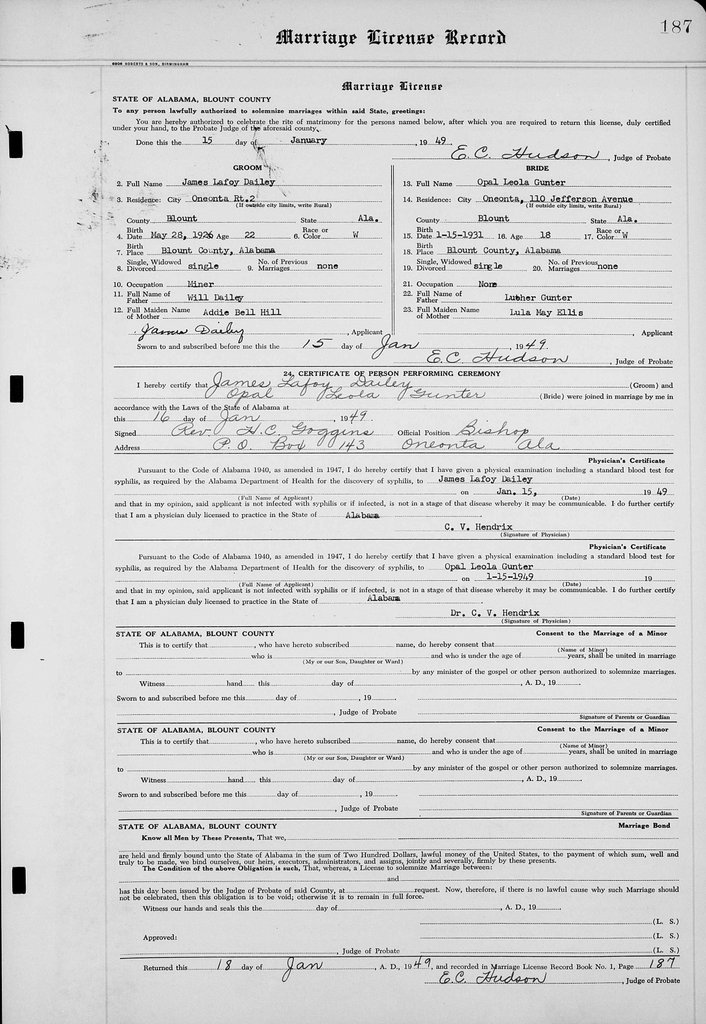 187
Marriage License Record
ROBERTS & SON, BIRMINGHAM
Marriage License
STATE OF ALABAMA, BLOUNT COUNTY
To any person lawfully authorized to solemnize marriages within said State, greetings:
You are hereby authorized to celebrate the rite of matrimony for the persons named below, after which you are required to return this license, duly certified
under your hand, to the Probate Judge of the aforesaid county.
Done this the 15 day of January, 1949. E.C. Hudson, Judge of Probate
GROOM BRIDE
2. Full Name James Lafoy Dailey 13. Full Name Opal Leola Gunter
3. Residence: City Oneonta Rt.2 14. Residence: City Oneonta, 110 Jefferson Avenue
(If outside city limits, write Rural) (If outside city limits, write Rural)
County Blount State Ala. County Blount State Ala.
4. Birth Date May 28, 1926 5. Age 22 6. Race or Color W 15. Birth Date 1-15-1931 16. Age 18 17. Race or Color W
7. Birth Place Blount County, Alabama 18. Birth Place Blount County, Alabama
8. Single, Widowed Divorced single 9. No. of Previous Marriages none 19. Single, Widowed Divorced single 20. No. of Previous Marriages none
10. Occupation Miner 21. Occupation None
11. Full Name of Father Will Dailey 22. Full Name of Father Luther Gunter
12. Full Maiden Name of Mother Addie Bell Hill 23. Full Maiden Name of Mother Lula May Ellis
James Dailey, Applicant , Applicant
Sworn to and subscribed before me this the 15 day of Jan, 1949.
E.C. Hudson, Judge of Probate
24. CERTIFICATE OF PERSON PERFORMING CEREMONY
I hereby certify that James Lafoy Dailey (Groom) and
Opal Leola Gunter (Bride) were joined in marriage by me in
accordance with the Laws of the State of Alabama at
this 16 day of Jan, 1949.
Signed Rev. H.C. Goggins Official Position Bishop
Address P.O. Box 143 Oneonta Ala
Physician's Certificate
Pursuant to the Code of Alabama 1940, as amended in 1947, I do hereby certify that I have given a physical examination including a standard blood test for
syphilis, as required by the Alabama Department of Health for the discovery of syphilis, to James Lafoy Dailey
on Jan. 15, 1949
(Full Name of Applicant) (Date)
and that in my opinion, said applicant is not infected with syphilis or if infected, is not in a stage of that disease whereby it may be communicable. I do further certify
that I am a physician duly licensed to practice in the State of Alabama
C. V. Hendrix
(Signature of Physician)
Physician's Certificate
Pursuant to the Code of Alabama 1940, as amended in 1947, I do hereby certify that I have given a physical examination including a standard blood test for
syphilis, as required by the Alabama Department of Health for the discovery of syphilis, to Opal Leola Gunter
on 1-15-1949 19
(Full Name of Applicant) (Date)
and that in my opinion, said applicant is not infected with syphilis or if infected, is not in a stage of that disease whereby it may be communicable. I do further certify
that I am a physician duly licensed to practice in the State of Alabama
Dr. C. V. Hendrix
(Signature of Physician)
STATE OF ALABAMA, BLOUNT COUNTY Consent to the Marriage of a Minor
This is to certify that , who have hereto subscribed name, do hereby consent that
(Name of Minor)
who is and who is under the age of years, shall be united in marriage
(My or our Son, Daughter or Ward)
to by any minister of the gospel or other person authorized to solemnize marriages.
Witness hand this day of , A. D., 19
Sworn to and subscribed before me this day of , 19
, Judge of Probate
Signature of Parents or Guardian
STATE OF ALABAMA, BLOUNT COUNTY Consent to the Marriage of a Minor
This is to certify that , who have hereto subscribed name, do hereby consent that
(Name of Minor)
who is and who is under the age of years, shall be united in marriage
(My or our Son, Daughter or Ward)
to by any minister of the gospel or other person authorized to solemnize marriages.
Witness hand this day of , A. D., 19
Sworn to and subscribed before me this day of , 19
, Judge of Probate
Signature of Parents or Guardian
STATE OF ALABAMA, BLOUNT COUNTY Marriage Bond
Know all Men by These Presents, That we,
are held and firmly bound unto the State of Alabama in the sum of Two Hundred Dollars, lawful money of the United States, to the payment of which sum, well and
truly to be made, we bind ourselves, our heirs, executors, administrators, and assigns, jointly and severally, firmly by these presents.
The Condition of the above Obligation is such, That, whereas, a License to solemnize Marriage between:
and
has this day been issued by the Judge of Probate of said County, at request. Now, therefore, if there is no lawful cause why such Marriage should
not be celebrated, then this obligation is to be void; otherwise it is to remain in full force.
Witness our hands and seals this the day of , A. D., 19
(L. S.)
Approved: (L. S.)
, Judge of Probate (L. S.)
Returned this 18 day of Jan, A. D., 1949, and recorded in Marriage License Record Book No. 1, Page 187
E.C. Hudson, Judge of Probate